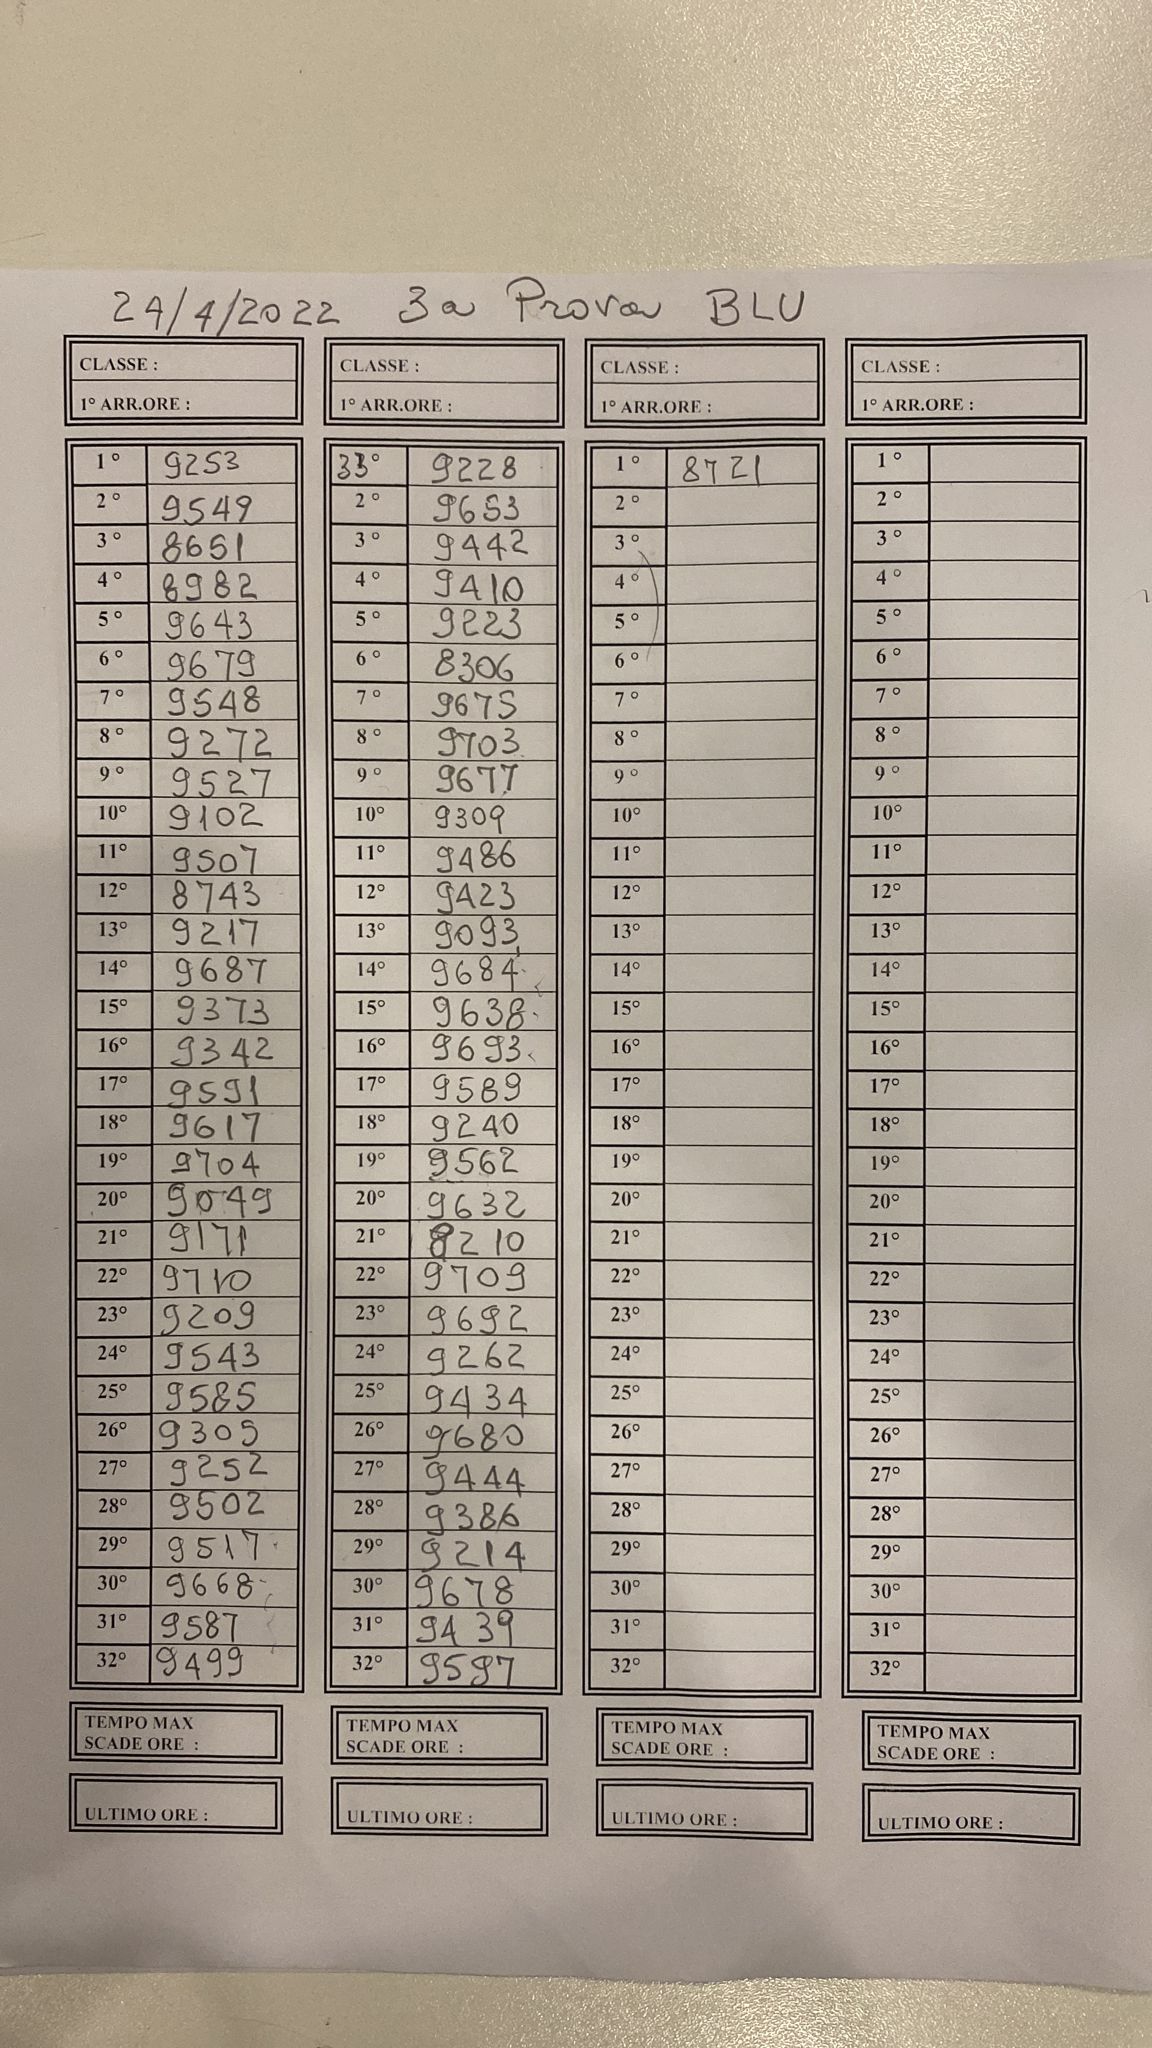 24/4/2022 3a Prova BLU
CLASSE :
1° ARR.ORE :
1° 9253
2° 9549
3° 8651
4° 8982
5° 9643
6° 9679
7° 9548
8° 9272
9° 9527
10° 9102
11° 9507
12° 8743
13° 9217
14° 9687
15° 9373
16° 9342
17° 9591
18° 9617
19° 9704
20° 9049
21° 9171
22° 9710
23° 9209
24° 9543
25° 9585
26° 9305
27° 9252
28° 9502
29° 9517
30° 9668
31° 9587
32° 9499
TEMPO MAX
SCADE ORE :
ULTIMO ORE :
CLASSE :
1° ARR.ORE :
33° 9228
2° 9653
3° 9442
4° 9410
5° 9223
6° 8306
7° 9675
8° 9703
9° 9677
10° 9309
11° 9486
12° 9423
13° 9093
14° 9684
15° 9638
16° 9693
17° 9589
18° 9240
19° 9562
20° 9632
21° 8210
22° 9709
23° 9692
24° 9262
25° 9434
26° 9680
27° 9444
28° 9386
29° 9214
30° 9678
31° 9439
32° 9597
TEMPO MAX
SCADE ORE :
ULTIMO ORE :
CLASSE :
1° ARR.ORE :
1° 8721
2°
3°
4°
5°
6°
7°
8°
9°
10°
11°
12°
13°
14°
15°
16°
17°
18°
19°
20°
21°
22°
23°
24°
25°
26°
27°
28°
29°
30°
31°
32°
TEMPO MAX
SCADE ORE :
ULTIMO ORE :
CLASSE :
1° ARR.ORE :
1°
2°
3°
4°
5°
6°
7°
8°
9°
10°
11°
12°
13°
14°
15°
16°
17°
18°
19°
20°
21°
22°
23°
24°
25°
26°
27°
28°
29°
30°
31°
32°
TEMPO MAX
SCADE ORE :
ULTIMO ORE :